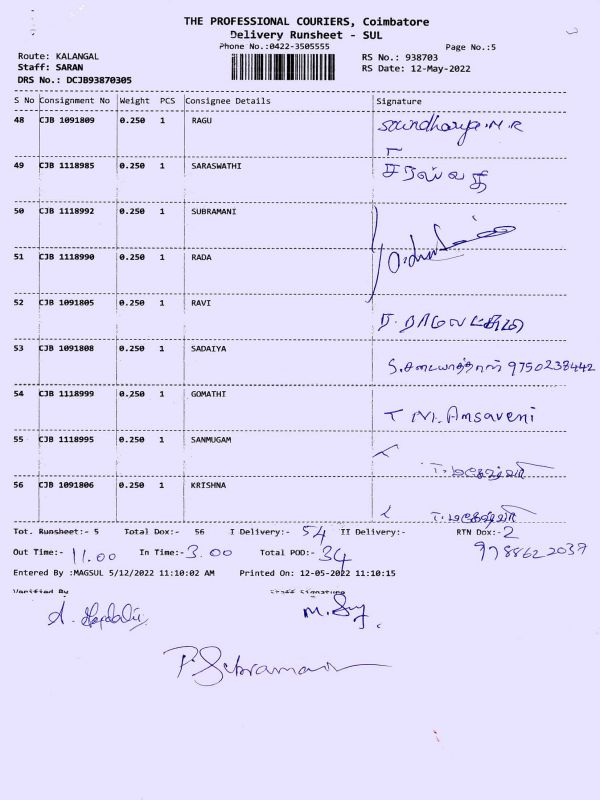 THE PROFESSIONAL COURIERS, Coimbatore
Delivery Runsheet - SUL
Phone No.:0422-3505555
Page No.:5
Route: KALANGAL
RS No.: 938703
Staff: SARAN
RS Date: 12-May-2022
DRS No.: DCJB93870305
S No Consignment No Weight PCS Consignee Details Signature
48 CJB 1091809 0.250 1 RAGU Soundharya.M.R
49 CJB 1118985 0.250 1 SARASWATHI சரஸ்வதி
50 CJB 1118992 0.250 1 SUBRAMANI
51 CJB 1118990 0.250 1 RADA
52 CJB 1091805 0.250 1 RAVI
53 CJB 1091808 0.250 1 SADAIYA 9750238442
54 CJB 1118999 0.250 1 GOMATHI T M. Amsaveni
55 CJB 1118995 0.250 1 SANMUGAM
56 CJB 1091806 0.250 1 KRISHNA
Tot. Runsheet:- 5 Total Dox:- 56 I Delivery:- 54 II Delivery:- RTN Dox:- 2
Out Time:- 11.00 In Time:- 3.00 Total POD:- 34 9788622037
Entered By :MAGSUL 5/12/2022 11:10:02 AM Printed On: 12-05-2022 11:10:15
Verified By